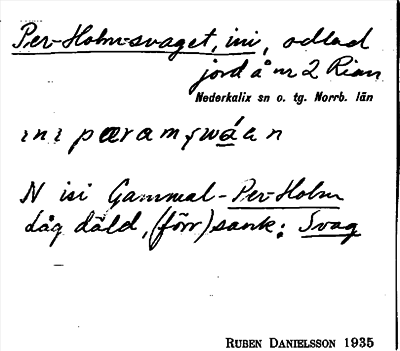 Per-Holm-svaget, ini, odlad
jord å nr 2 Rian
Nederkalix sn o. tg. Norrb. län
ini
N isi Gammal-Per-Holm
Låg däld, (förr) sank; Svag
RUBEN DANIELSSON 1935